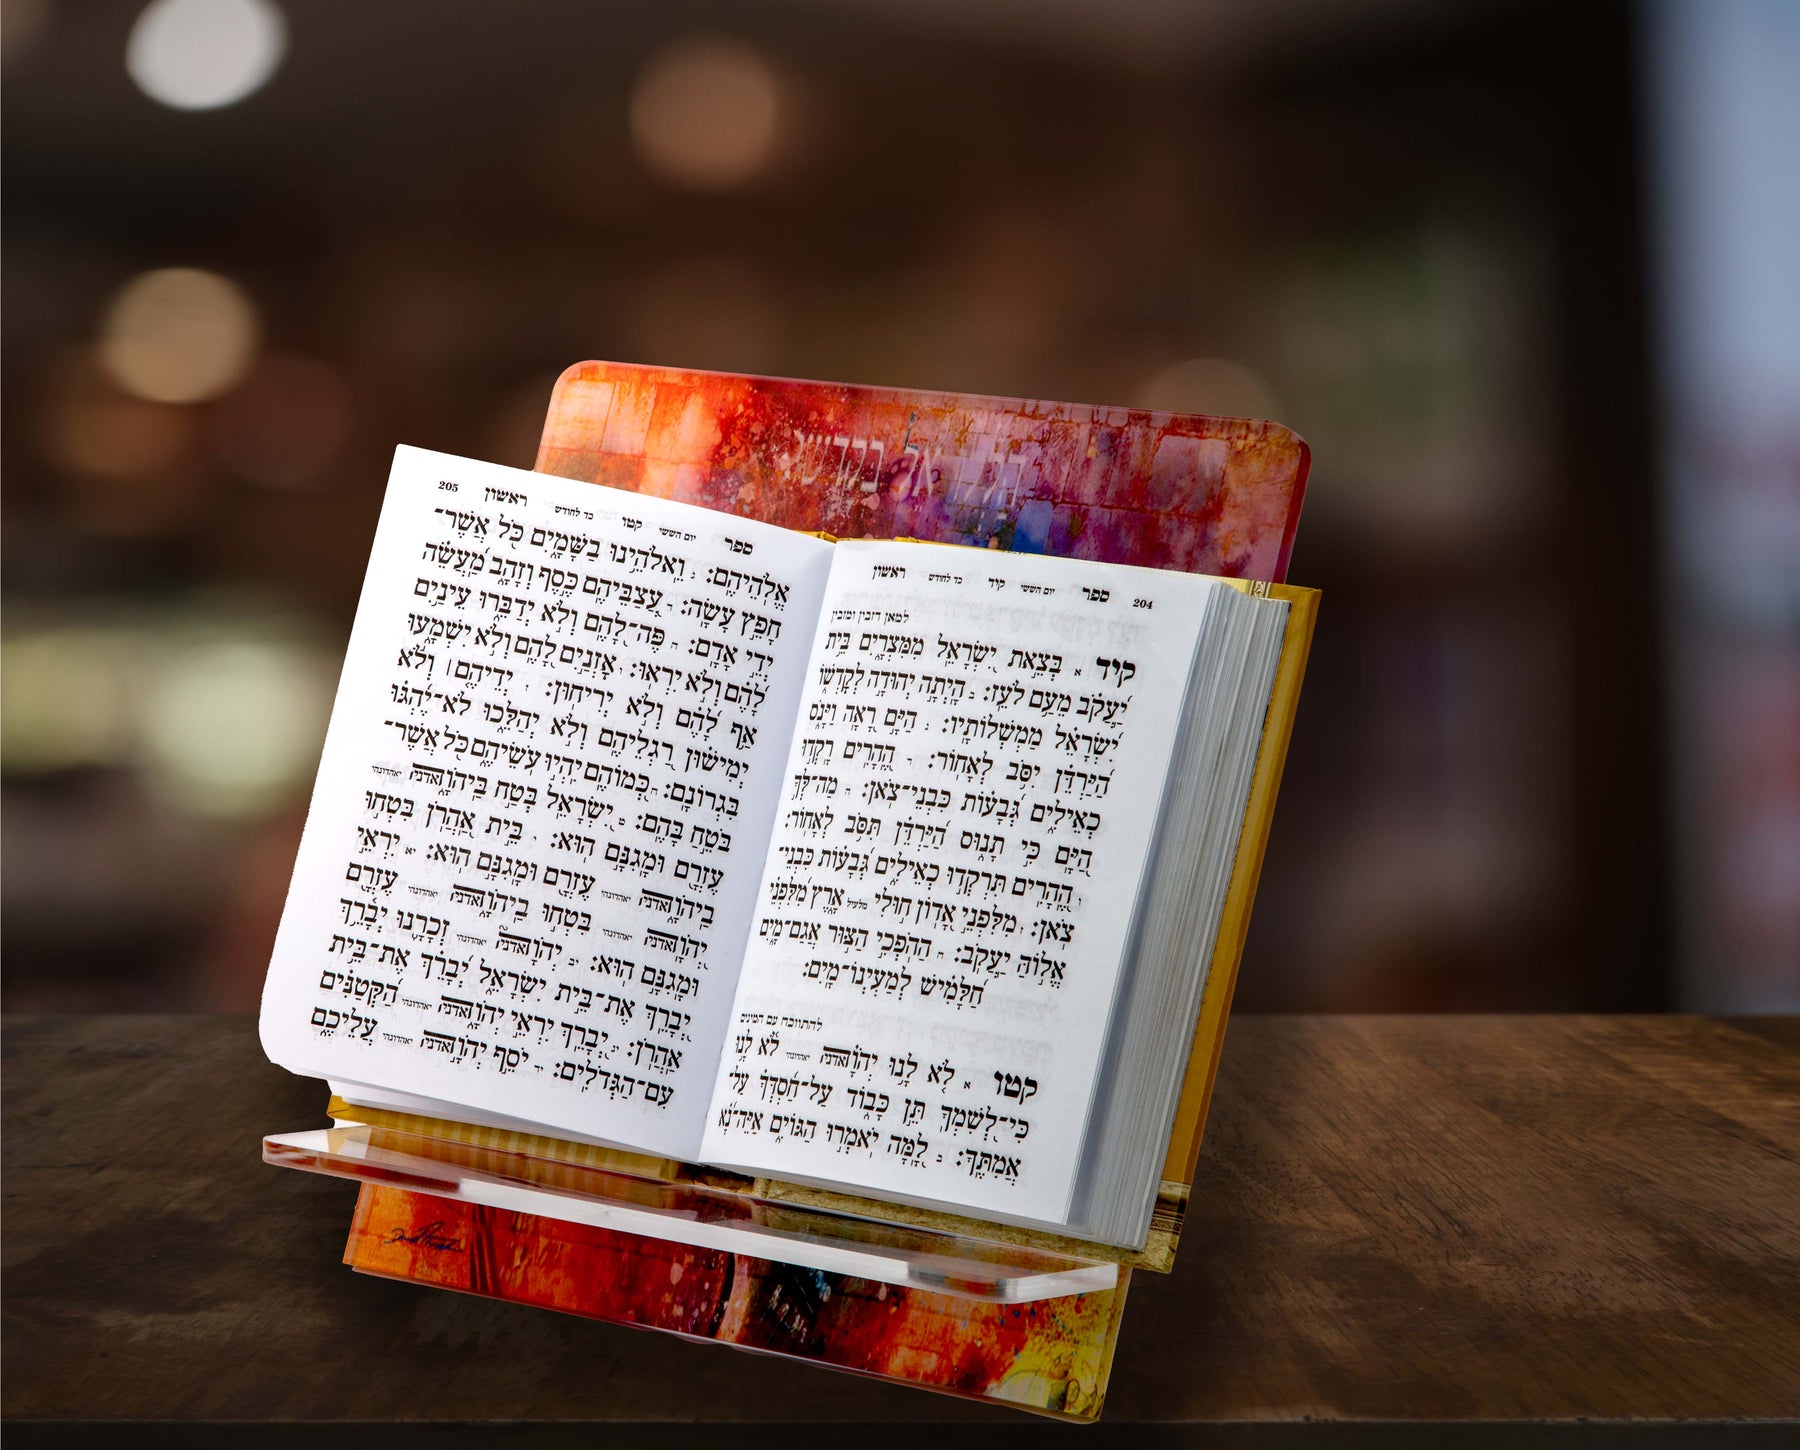 הללו אל בקדשו
204 ספר יום הששי קיד כד לחודש ראשון
למאן דיבין ומובין
קיד א בְּצֵאת יִשְׂרָאֵל מִמִּצְרָיִם בֵּית
יַעֲקֹב מֵעַם לֹעֵז: ב הָיְתָה יְהוּדָה לְקָדְשׁוֹ
יִשְׂרָאֵל מַמְשְׁלוֹתָיו: ג הַיָּם רָאָה וַיָּנֹס
הַיַּרְדֵּן יִסֹּב לְאָחוֹר: ד הֶהָרִים רָקְדוּ
כְאֵילִים גְּבָעוֹת כִּבְנֵי־צֹאן: ה מַה־לְּךָ
הַיָּם כִּי תָנוּס הַיַּרְדֵּן תִּסֹּב לְאָחוֹר:
ו הֶהָרִים תִּרְקְדוּ כְאֵילִים גְּבָעוֹת כִּבְנֵי־
צֹאן: ז מִלִּפְנֵי אָדוֹן חוּלִי מלעיל אָרֶץ מִלִּפְנֵי
אֱלוֹהַּ יַעֲקֹב: ח הַהֹפְכִי הַצּוּר אֲגַם־מָיִם
חַלָּמִישׁ לְמַעְיְנוֹ־מָיִם:
להתווכח עם המינים
קטו א לֹא לָנוּ יְהֹוָהאדני יאהדונהי לֹא לָנוּ
כִּי־לְשִׁמְךָ תֵּן כָּבוֹד עַל־חַסְדְּךָ עַל־
אֲמִתֶּךָ: ב לָמָּה יֹאמְרוּ הַגּוֹיִם אַיֵּה־נָא
ספר יום הששי קטו כד לחודש ראשון 205
אֱלֹהֵיהֶם: ג וֵאלֹהֵינוּ בַשָּׁמָיִם כֹּל אֲשֶׁר־
חָפֵץ עָשָׂה: ד עֲצַבֵּיהֶם כֶּסֶף וְזָהָב מַעֲשֵׂה
יְדֵי אָדָם: ה פֶּה־לָהֶם וְלֹא יְדַבֵּרוּ עֵינַיִם
לָהֶם וְלֹא יִרְאוּ: ו אָזְנַיִם לָהֶם וְלֹא יִשְׁמָעוּ
אַף לָהֶם וְלֹא יְרִיחוּן: ז יְדֵיהֶם׀ וְלֹא
יְמִישׁוּן רַגְלֵיהֶם וְלֹא יְהַלֵּכוּ לֹא־יֶהְגּוּ
בִּגְרוֹנָם: ח כְּמוֹהֶם יִהְיוּ עֹשֵׂיהֶם כֹּל אֲשֶׁר־
בֹּטֵחַ בָּהֶם: ט יִשְׂרָאֵל בְּטַח בַּיהֹוָהאדני יאהדונהי
עֶזְרָם וּמָגִנָּם הוּא: י בֵּית אַהֲרֹן בִּטְחוּ
בַיהֹוָהאדני יאהדונהי עֶזְרָם וּמָגִנָּם הוּא: יא יִרְאֵי
יְהֹוָהאדני יאהדונהי בִּטְחוּ בַיהֹוָהאדני יאהדונהי עֶזְרָם
וּמָגִנָּם הוּא: יב יְהֹוָהאדני יאהדונהי זְכָרָנוּ יְבָרֵךְ
יְבָרֵךְ אֶת־בֵּית יִשְׂרָאֵל יְבָרֵךְ אֶת־בֵּית
אַהֲרֹן: יג יְבָרֵךְ יִרְאֵי יְהֹוָהאדני יאהדונהי הַקְּטַנִּים
עִם־הַגְּדֹלִים: יד יֹסֵף יְהֹוָהאדני יאהדונהי עֲלֵיכֶם